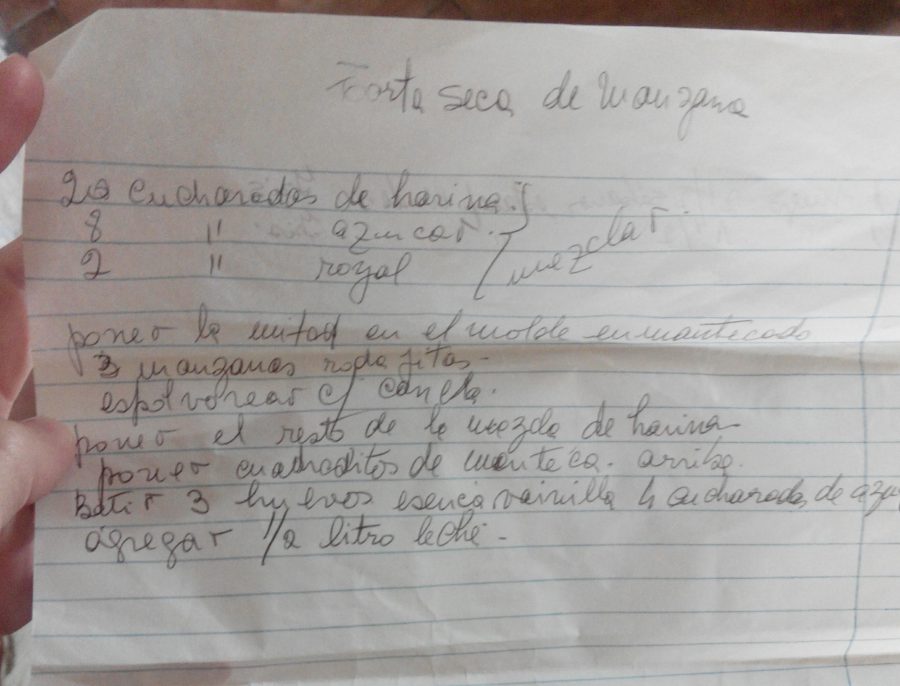 Torta seca de manzana
20 cucharadas de harina.
8 " azucar.
2 " royal
mezclar.
poner la mitad en el molde enmantecado
3 manzanas rodajitas-
espolvorear c/ canela.
poner el resto de la mezcla de harina
poner cuadraditos de manteca. arriba.
Batir 3 huevos esencia vainilla 4 cucharada de azu
agregar 1/2 litro leche-